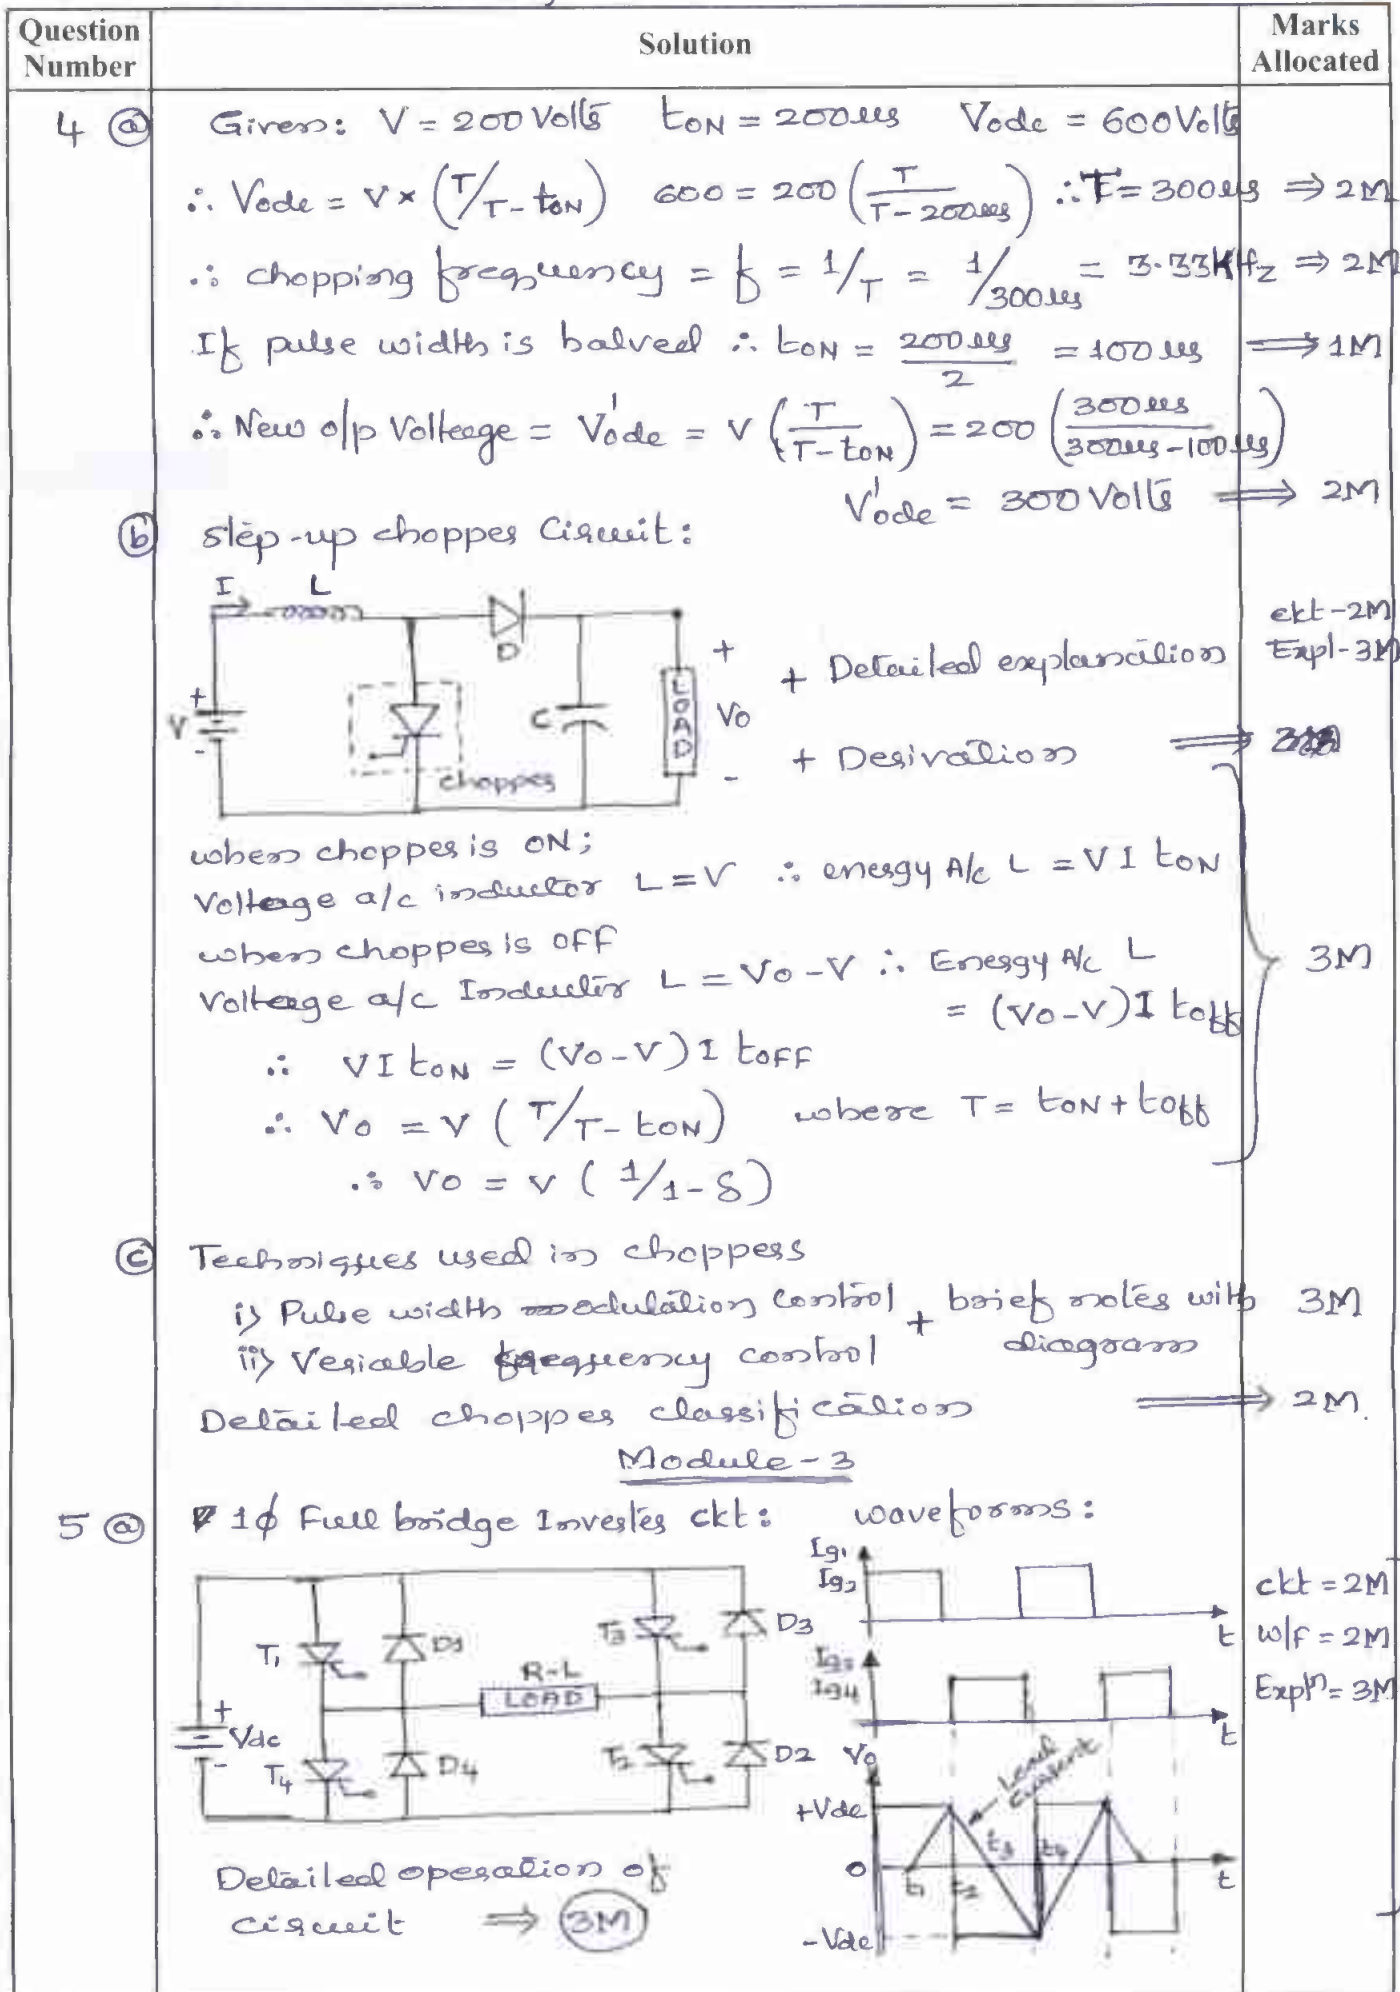 Question Number
Solution
Marks Allocated
4 (a) Given: V = 200 Volts tON = 200μs Vodc = 600 Volts
∴ Vodc = V × (T/T-tON) 600 = 200 (T/T-200μs) ∴ T = 300μs ⇒ 2M
∴ chopping frequency = f = 1/T = 1/300μs = 3.33KHz ⇒ 2M
If pulse width is halved ∴ tON = 200μs/2 = 100μs ⇒ 1M
∴ New o/p Voltage = V'odc = V (T/T-tON) = 200 (300μs/300μs-100μs)
V'odc = 300 Volts ⇒ 2M
(b) step-up chopper Circuit:
I L
D
+ V -
chopper
C
LOAD
+ Vo -
+ Detailed explanation
ckt-2M
Expl-3M
+ Derivation ⇒
when chopper is ON;
Voltage a/c inductor L = V ∴ energy A/c L = V I tON
when chopper is OFF
Voltage a/c Inductor L = Vo-V ∴ Energy A/c L
= (Vo-V) I toff
3M
∴ V I tON = (Vo-V) I tOFF
∴ Vo = V (T/T-tON) where T = tON + toff
∴ Vo = V (1/1-δ)
(c) Techniques used in choppers
i) Pulse width modulation control + brief notes with 3M
ii) Veriable frequency control diagram
Detailed chopper classification ⇒ 2M.
Module-3
5 (a) 1φ Full bridge Inverter ckt: waveforms:
T1 D1 T3 D3
R-L
LOAD
+ Vdc -
T4 D4 T2 D2
Ig1
Ig2
t
Ig3
Ig4
t
Vo
Load current
+Vdc
0 t1 t2 t3 t4 t
-Vdc
ckt = 2M
w/f = 2M
Expln = 3M
Detailed operation of
circuit ⇒ (3M)